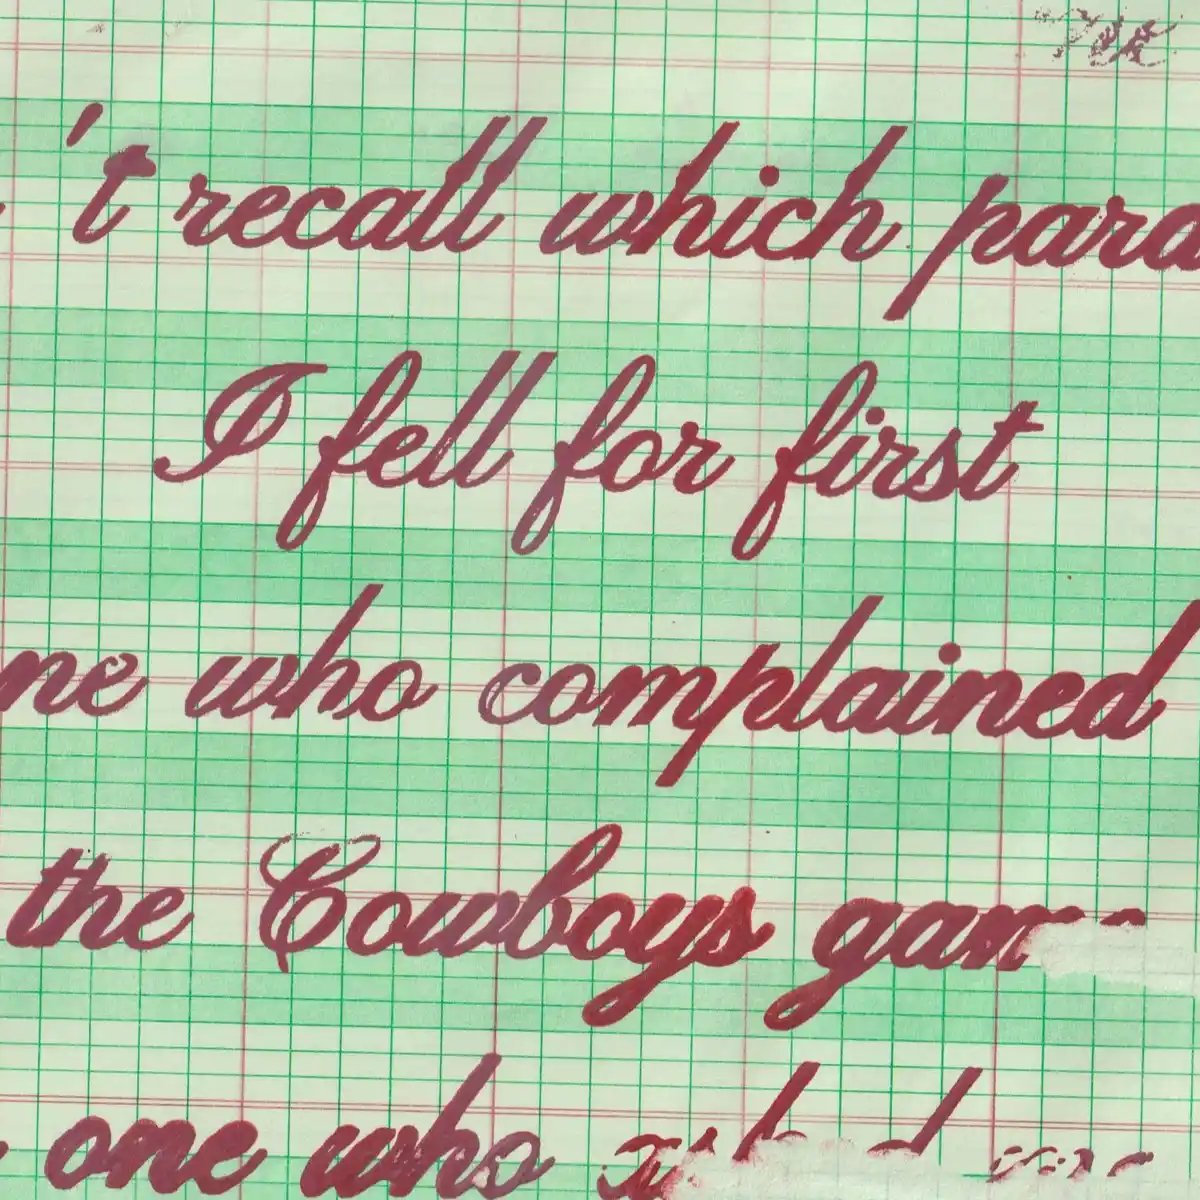 't recall which para
I fell for first
ne who complained
the Cowboys gam
one who